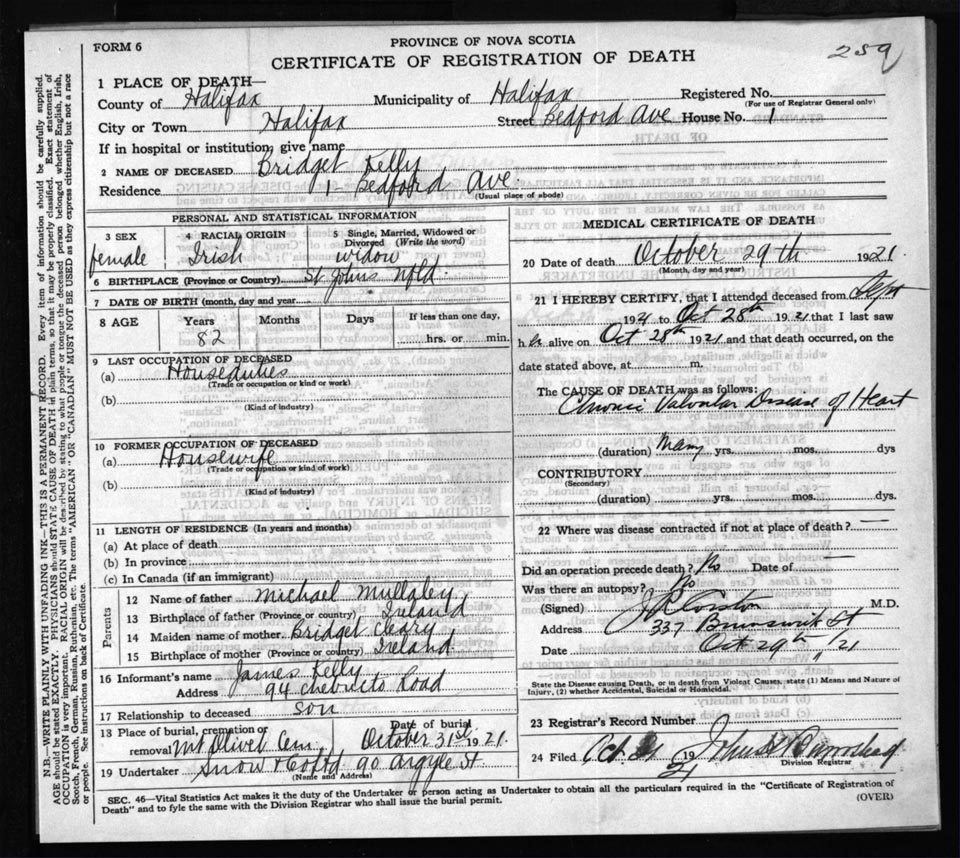 259
FORM 6
PROVINCE OF NOVA SCOTIA
CERTIFICATE OF REGISTRATION OF DEATH
1 PLACE OF DEATH—
County of Halifax Municipality of Halifax Registered No.
(For use of Registrar General only)
City or Town Halifax Street Bedford Ave House No. 1
If in hospital or institution, give name
2 NAME OF DECEASED Bridget Kelly
Residence 1 Bedford Ave.
(Usual place of abode)
PERSONAL AND STATISTICAL INFORMATION
3 SEX 4 RACIAL ORIGIN 5 Single, Married, Widowed or Divorced (Write the word)
female Irish widow
6 BIRTHPLACE (Province or Country) St Johns Nfld.
7 DATE OF BIRTH (month, day and year)
8 AGE Years Months Days If less than one day,
82 hrs. or min.
9 LAST OCCUPATION OF DECEASED
(a) Houseduties
(Trade or occupation or kind or work)
(b)
(Kind of industry)
10 FORMER OCCUPATION OF DECEASED
(a) Housewife
(Trade or occupation or kind or work)
(b)
(Kind of industry)
11 LENGTH OF RESIDENCE (In years and months)
(a) At place of death
(b) In province
(c) In Canada (if an immigrant)
Parents
12 Name of father Michael Mullaley
13 Birthplace of father (Province or Country) Ireland
14 Maiden name of mother Bridget Cleary
15 Birthplace of mother (Province or country) Ireland.
16 Informant's name James Kelly
Address 94 Chebucto Road
17 Relationship to deceased son
13 Place of burial, cremation or removal Mt Olivet Cem Date of burial October 31st 1921.
19 Undertaker Snow & Co Ltd 90 Argyle St
(Name and Address)
MEDICAL CERTIFICATE OF DEATH
20 Date of death October 29th 1921.
(Month, day and year)
21 I HEREBY CERTIFY, that I attended deceased from Sept
192 to Oct 28th 1921 that I last saw
her alive on Oct 28th 1921 and that death occurred, on the
date stated above, at m.
The CAUSE OF DEATH was as follows:
Chronic Valvular Disease of Heart
(duration) Many yrs. mos. dys
CONTRIBUTORY
(Secondary)
(duration) yrs. mos. dys.
22 Where was disease contracted if not at place of death? —
Did an operation precede death? No Date of —
Was there an autopsy? No
(Signed) J R Corston M.D.
Address 337 Brunswick St
Date Oct 29th " 21
State the Disease causing Death, or in death from Violent Causes, state (1) Means and Nature of Injury, (2) whether Accidental, Suicidal or Homicidal.
23 Registrar's Record Number
24 Filed Oct 31 1921
Division Registrar
SEC. 46—Vital Statistics Act makes it the duty of the Undertaker or person acting as Undertaker to obtain all the particulars required in the "Certificate of Registration of
Death" and to fyle the same with the Division Registrar who shall issue the burial permit.
(OVER)
N.B.—WRITE PLAINLY WITH UNFADING INK—THIS IS A PERMANENT RECORD. Every item of information should be carefully supplied.
AGE should be stated EXACTLY. PHYSICIANS should STATE CAUSE OF DEATH in plain terms, so that it may be properly classified. Exact statement of
OCCUPATION is very important. RACIAL ORIGIN will be described by stating to what people or tongue the deceased person belonged whether English, Irish,
Scotch, French, German, Russian, Ruthenian, etc. The terms "AMERICAN" OR "CANADIAN" MUST NOT BE USED as they express citizenship but not a race
or people. See instructions on back of Certificate.